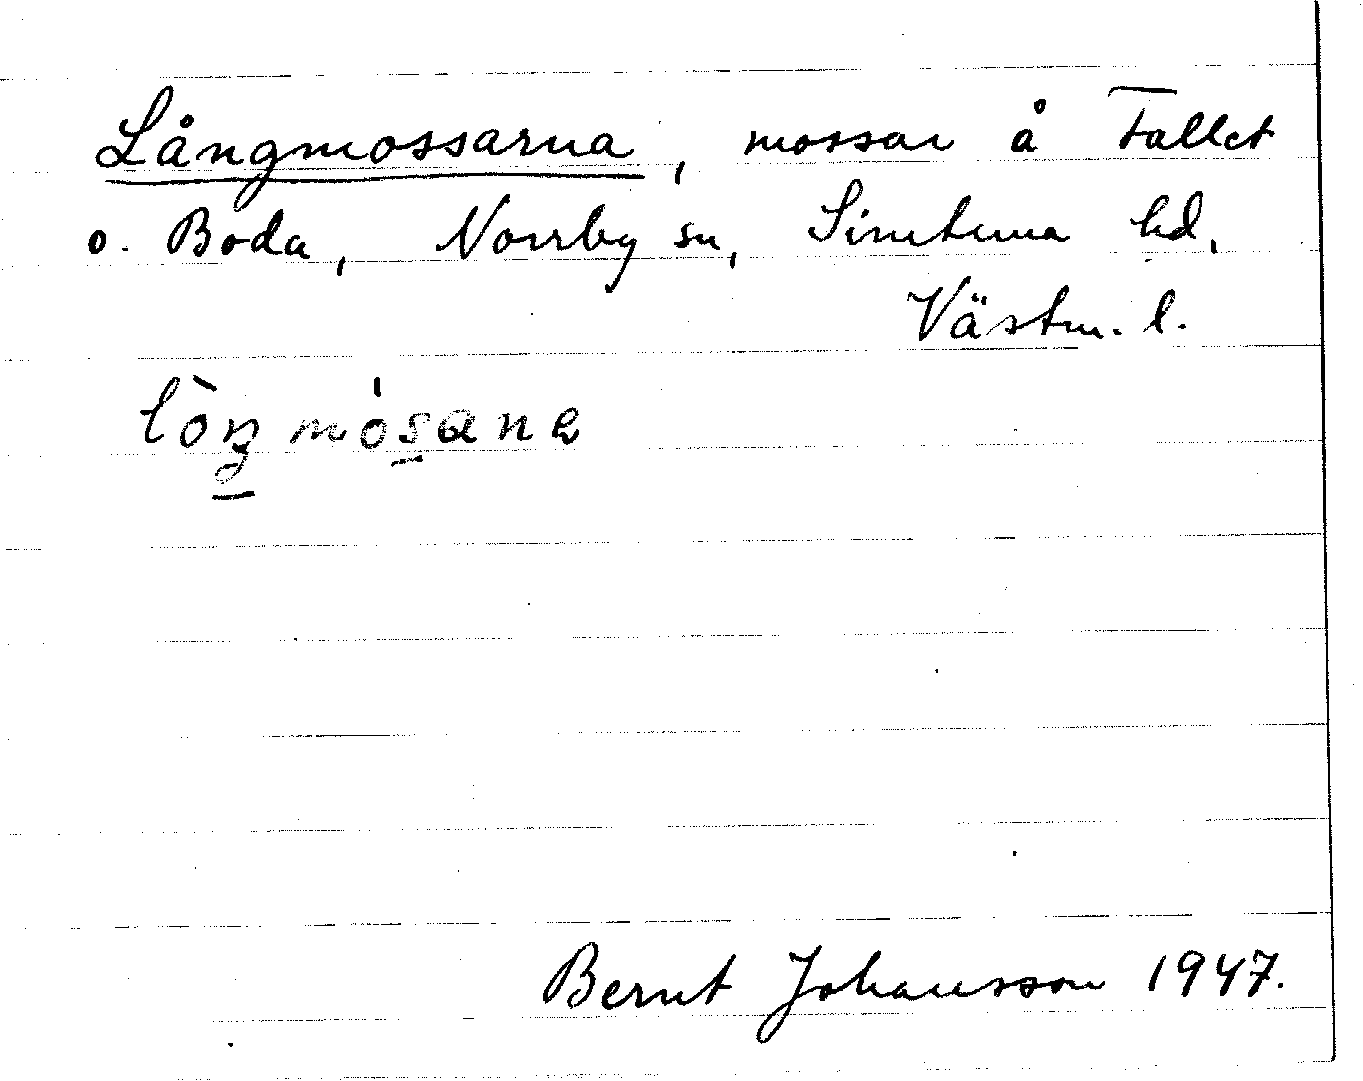 Långmossarna, mossar å Fallet
o. Boda, Norrby sn, Simtuna hd,
Västm. l.
lòŋmósana
Bernt Johansson 1947.